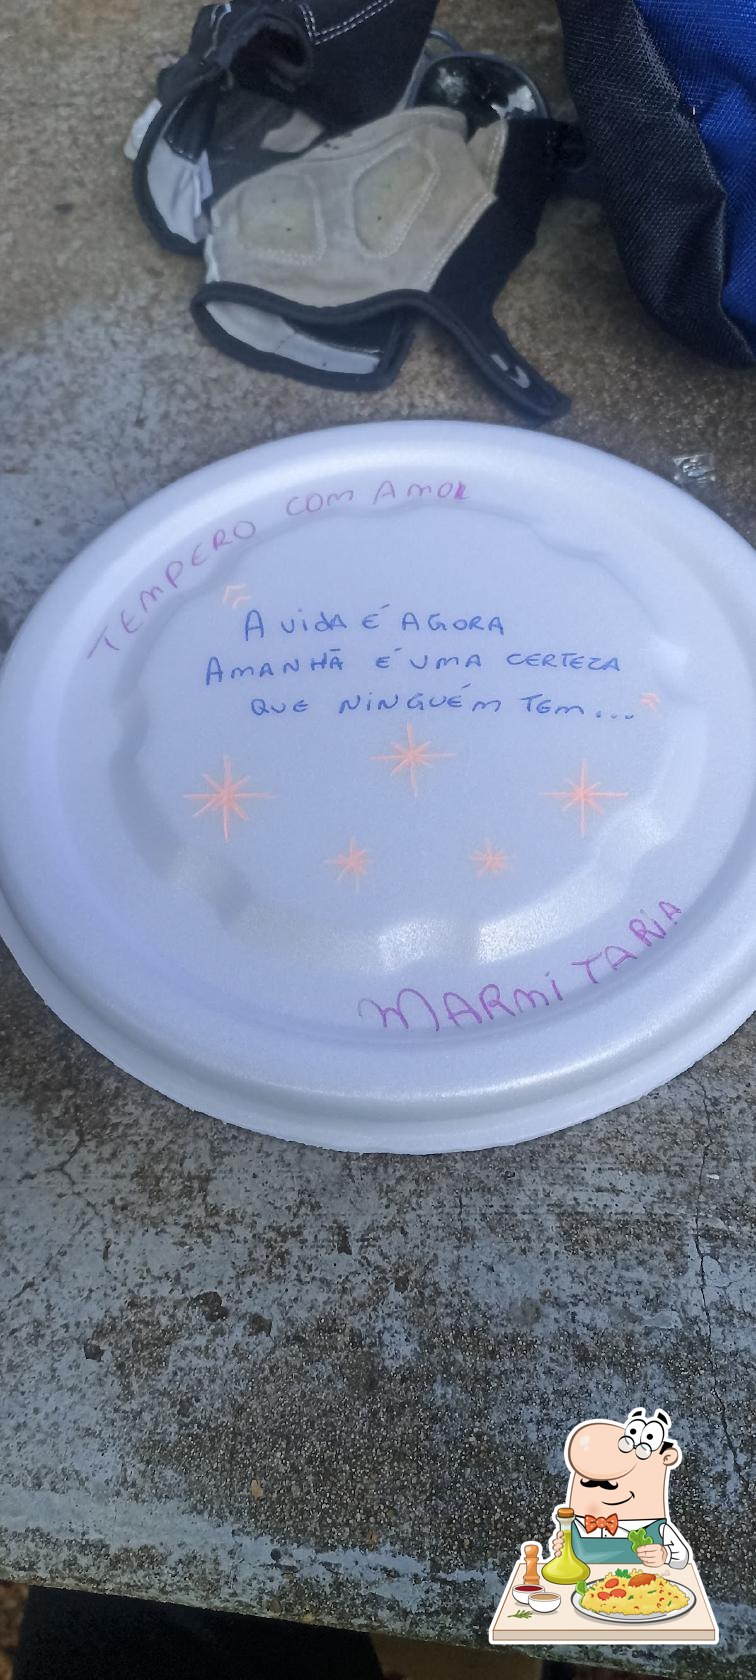 TEMPERO COM AMOR
"A VIDA É AGORA
AMANHÃ É UMA CERTEZA
QUE NINGUÉM TEM..."
MARMITARIA